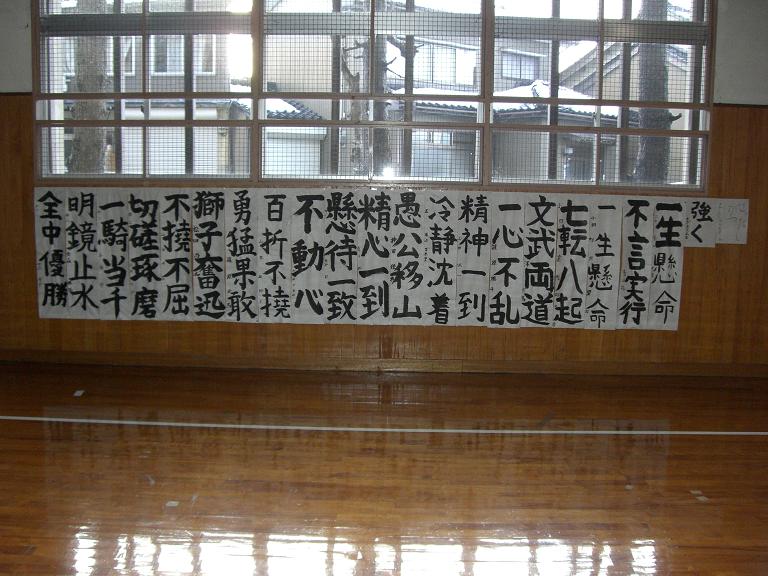 強く
一生懸命
不言実行
一生懸命
七転八起
文武両道
一心不乱
精神一到
冷静沈着
愚公移山
精心一到
懸待一致
不動心
百折不撓
勇猛果敢
獅子奮迅
不撓不屈
切磋琢磨
一騎当千
明鏡止水
全中優勝